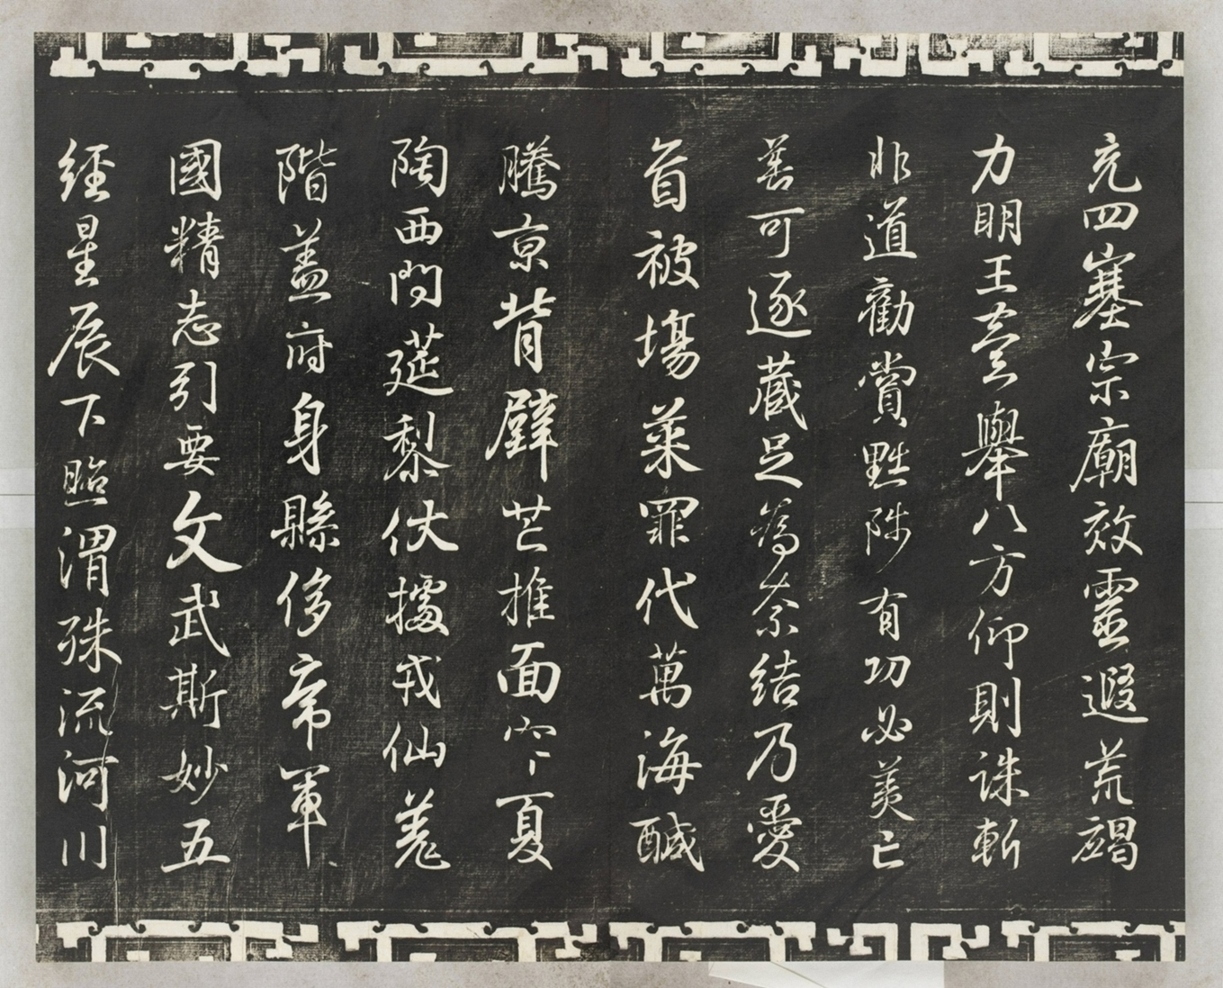 充四塞宗廟效靈遐荒碣
力明王壹舉八方仰則誅斬
非道勸賞黜陟有功必美已
善可逐藏足為奈結乃愛
首被場菜罪代萬海鹹
騰京背辟芒推面夏
陶西問莚黎伏據戎仙羌
階蓋府身縣侈帝軍
國精志引要文武斯妙五
經星辰下照渭殊流河川